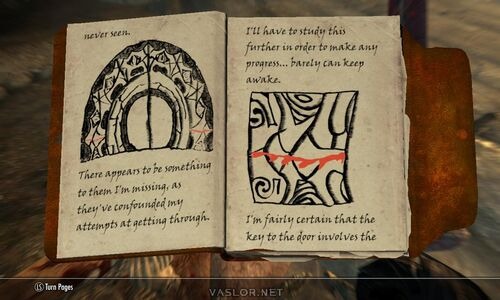 never seen.
There appears to be something
to them I'm missing, as
they've confounded my
attempts at getting through.
I'll have to study this
further in order to make any
progress... barely can keep
awake.
I'm fairly certain that the
key to the door involves the
LS Turn Pages
VASLOR.NET